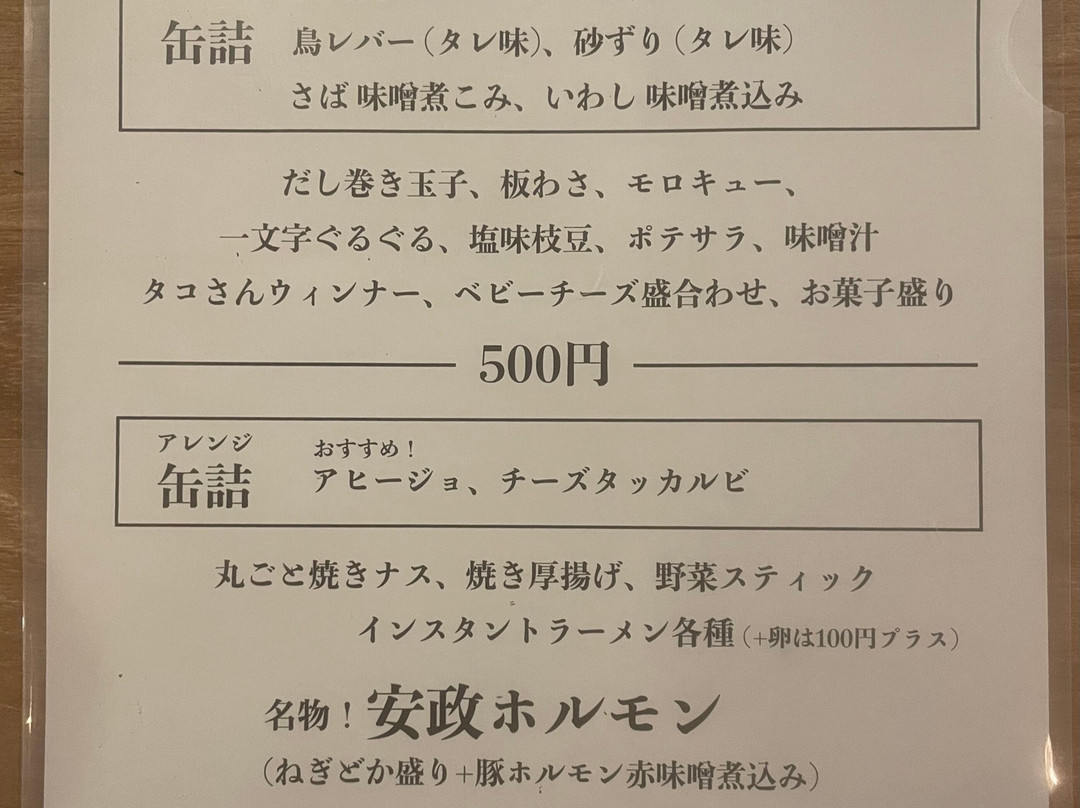 缶詰 鳥レバー（タレ味）、砂ずり（タレ味）
さば 味噌煮こみ、いわし 味噌煮込み
だし巻き玉子、板わさ、モロキュー、
一文字ぐるぐる、塩味枝豆、ポテサラ、味噌汁
タコさんウィンナー、ベビーチーズ盛合わせ、お菓子盛り
500円
アレンジ
缶詰
おすすめ！
アヒージョ、チーズタッカルビ
丸ごと焼きナス、焼き厚揚げ、野菜スティック
インスタントラーメン各種（+卵は100円プラス）
名物！安政ホルモン
（ねぎどか盛り+豚ホルモン赤味噌煮込み）